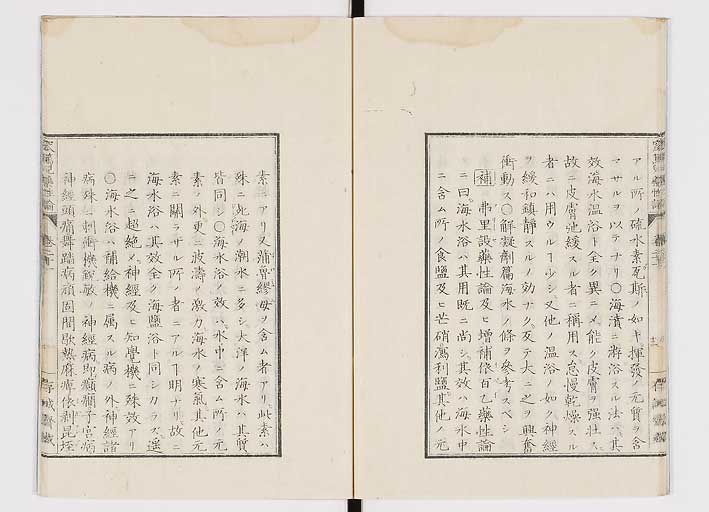 アル所ノ硫水素瓦斯ノ如キ揮發ノ元質ヲ含
マサルヲ以テナリ〇海濱ニ游浴スル法ハ其
效海水温浴ト全ク異ニメ能ク皮膚ヲ強壮ス
故ニ皮膚弛緩スル者ニ稱用ス怠慢乾燥スル
者ニハ用ウルヿ少シ又他ノ温浴ノ如ク神經
ヲ緩和鎮靜スルノ効ナク反テ大ニ之ヲ興奮
衝動ス〇解凝劑篇海水ノ條ヲ參考スベシ
補 弗里設藥性論及ヒ増補依百乙藥性論
ニ曰海水浴ハ其用既ニ尚シ其效ハ海水中
ニ含ム所ノ食鹽及ヒ芒硝瀉利鹽其他ノ元
素ニアリ又蒲魯繆母ヲ含ム者アリ此素ハ
殊ニ北海ノ潮水ニ多シ大洋ノ海水ハ其質
皆同シ〇海水浴ノ效ハ水中ニ含ム所ノ元
素ノ外更ニ波濤ノ激力海水ノ寒氣其他元
素ニ關ラサル所ノ者ニアルヿ明ナリ故ニ
海水浴ハ其效全ク海鹽浴ト同シカラス遥
ニ之ニ超絶メ神經及ヒ知覺機ニ殊效アリ
〇海水浴ハ補給機ニ属スル病ノ外神經諸
病殊ニ刺衝機鋭敏ノ神經病即癲癇子宮病
神經頭痛舞踏病頑固間歇熱麻痺依剥昆垤